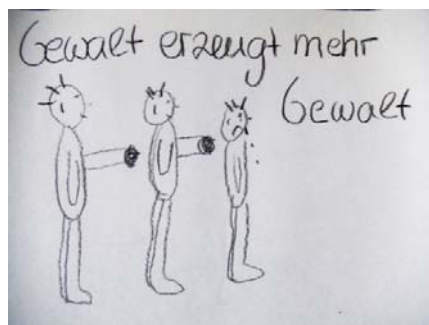 Gewalt erzeugt mehr
Gewalt